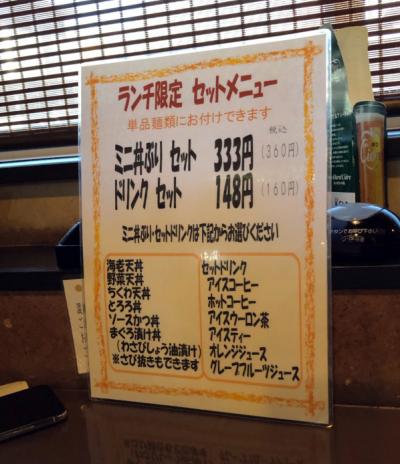 ランチ限定 セットメニュー
単品麺類にお付けできます
税込
ミニ丼ぶり セット 333円 (360円)
ドリンク セット 148円 (160円)
ミニ丼ぶり・セットドリンクは下記からお選びください
海老天丼
野菜天丼
ちくわ天丼
とろろ丼
ソースかつ丼
まぐろ漬け丼
(わさびしょう油漬け)
※さび抜きもできます
セットドリンク
アイスコーヒー
ホットコーヒー
アイスウーロン茶
アイスティー
オレンジジュース
グレープフルーツジュース